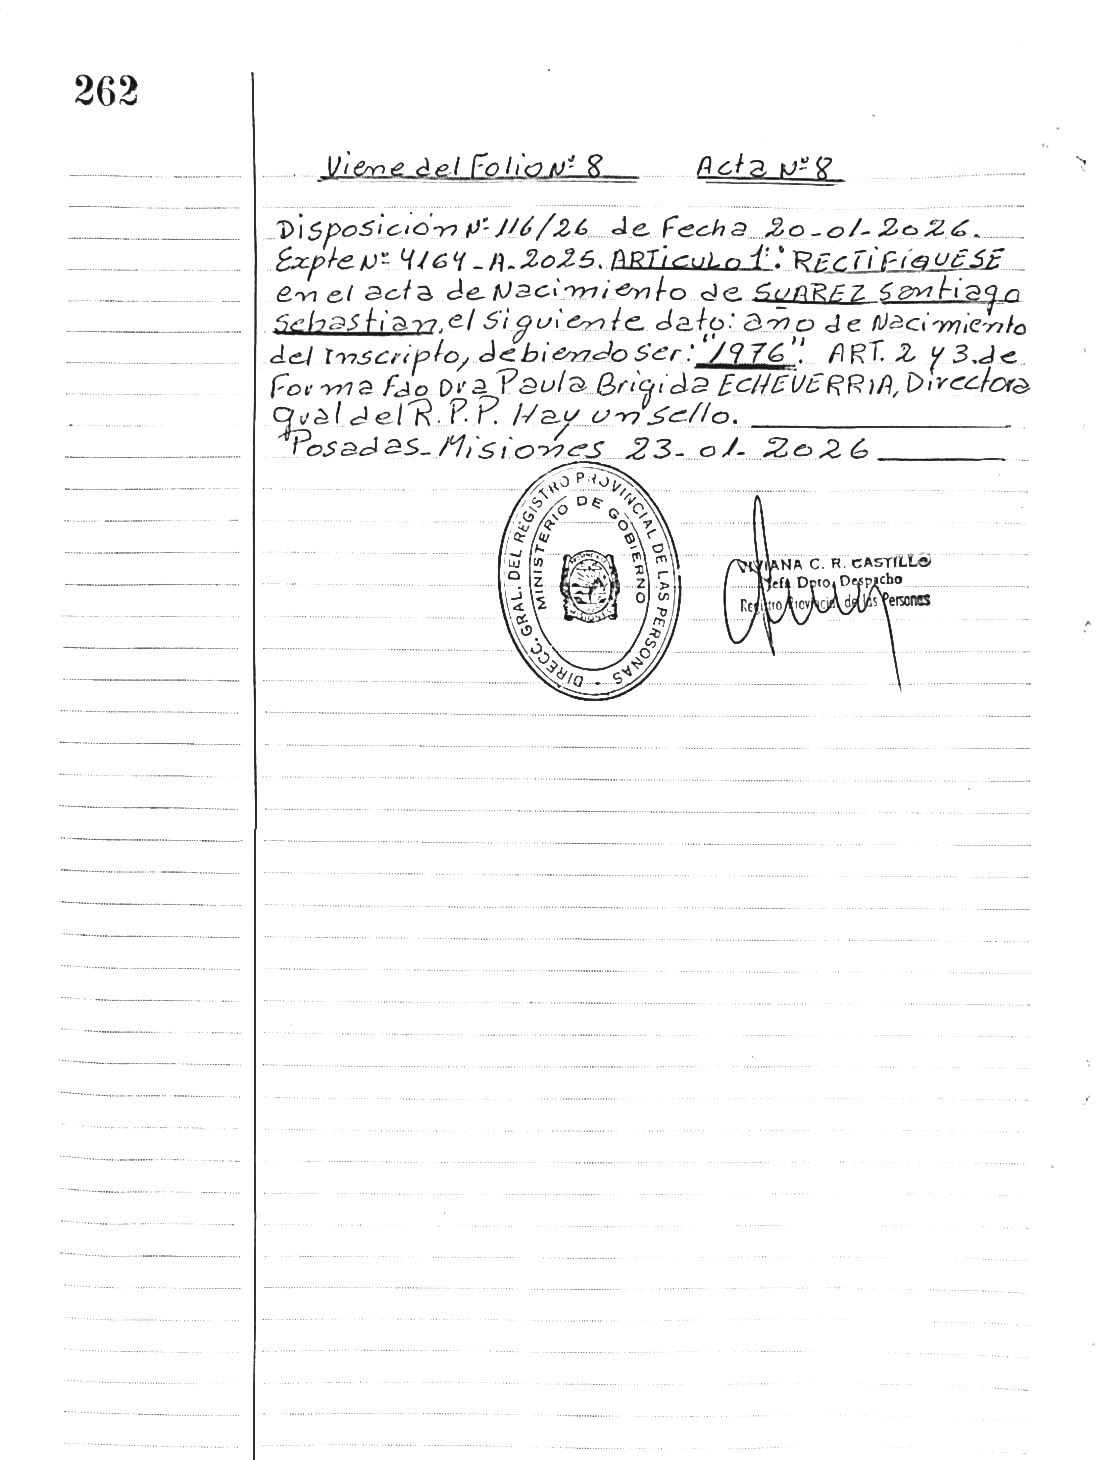 262
Viene del Folio Nº 8 Acta Nº 8
Disposición Nº 116/26 de Fecha 20-01-2026.
Expte Nº 4164-A-2025. ARTICULO 1º: RECTIFÍQUESE
en el acta de Nacimiento de SUAREZ Santiago
Sebastian, el siguiente dato: año de Nacimiento
del Inscripto, debiendo ser: "1976". ART. 2 y 3. de
Forma fdo Dra Paula Brigida ECHEVERRIA, Directora
Gral del R.P.P. Hay un sello.
Posadas-Misiones 23-01-2026
DIRECC. GRAL. DEL REGISTRO PROVINCIAL DE LAS PERSONAS -
MINISTERIO DE GOBIERNO
VIVIANA C. R. CASTILLO
Jefa Dpto. Despacho
Registro Provincial de las Personas